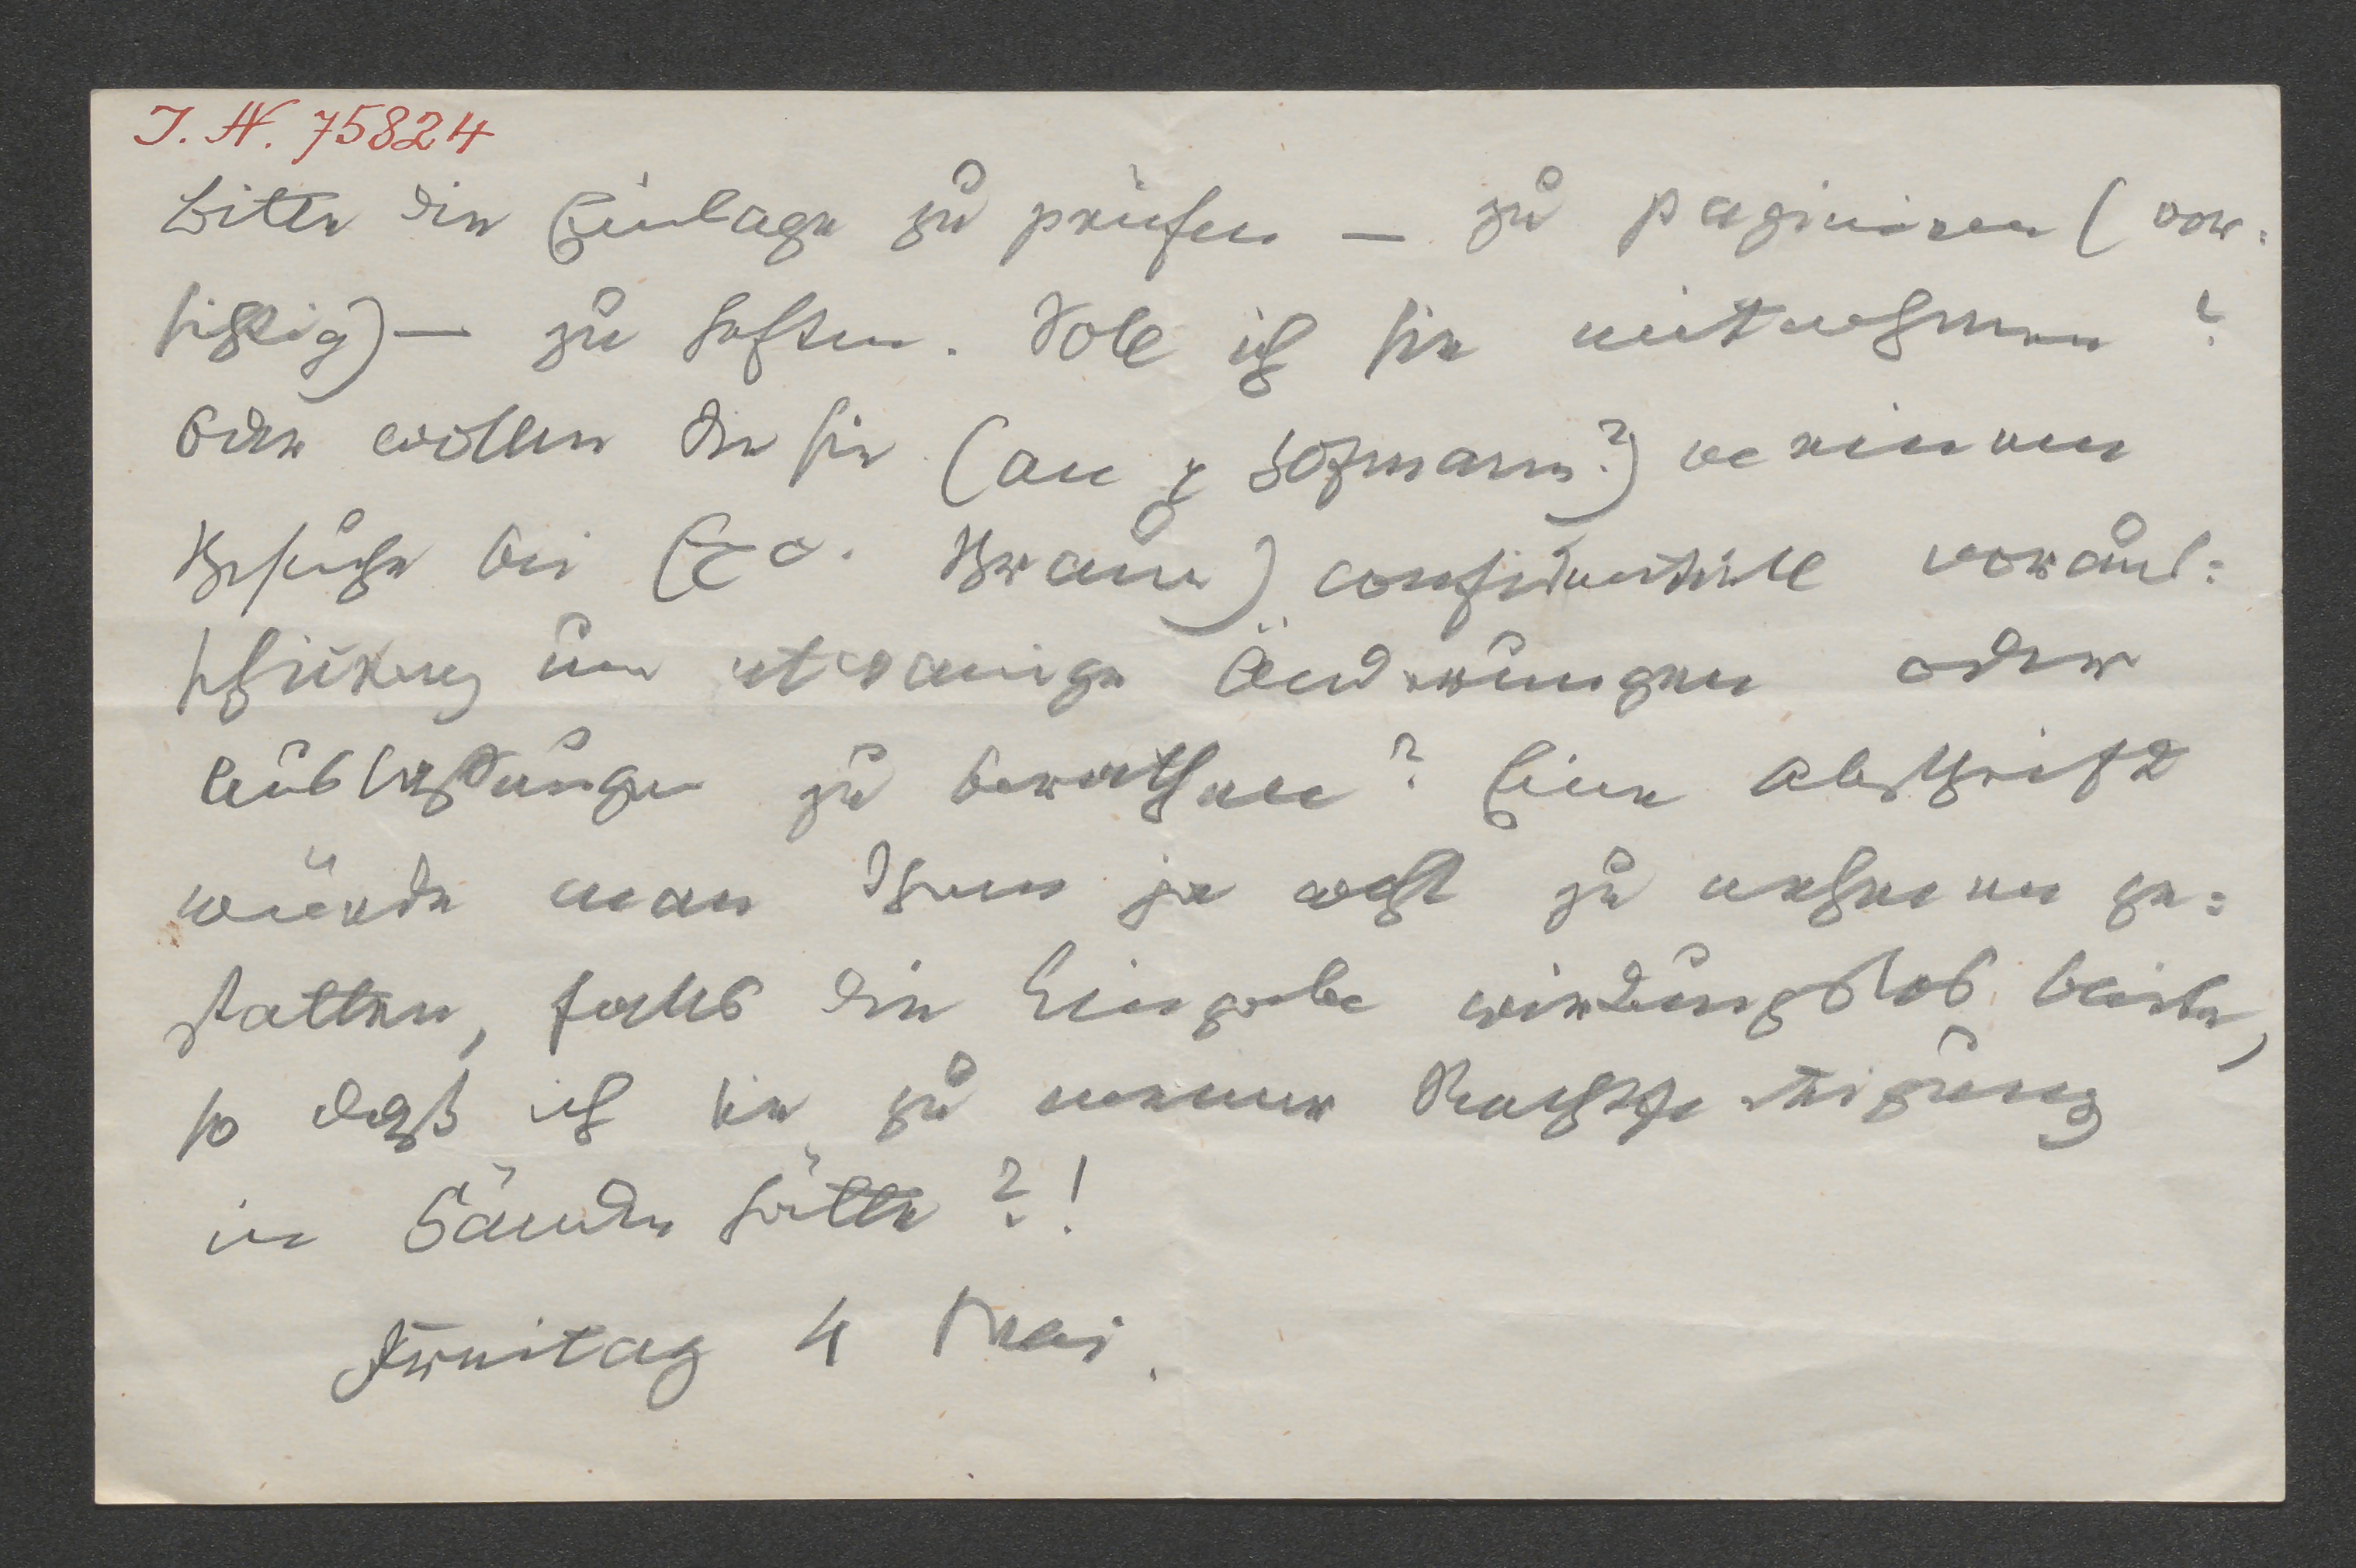 I. N. 75824
Bitte die Einlage zu prüfen — zu paginiren (vor=
sichtig) — zu heften. Soll ich sie mitnehmen?
Oder wollen Sie sie (an Hofmann?) meinem
Besuche bei Exc. Braun) confidentiell voraus=
schicken, um etwaige Änderungen oder
Auslassungen zu berathen? Eine Abschrift
würde man Ihnen ja wohl zu nehmen ge=
statten, falls die Eingabe wirkungslos bleibe,
so daß ich sie zu meiner Rechtfertigung
in Händen hätte?!
Freitag 4 Mai.